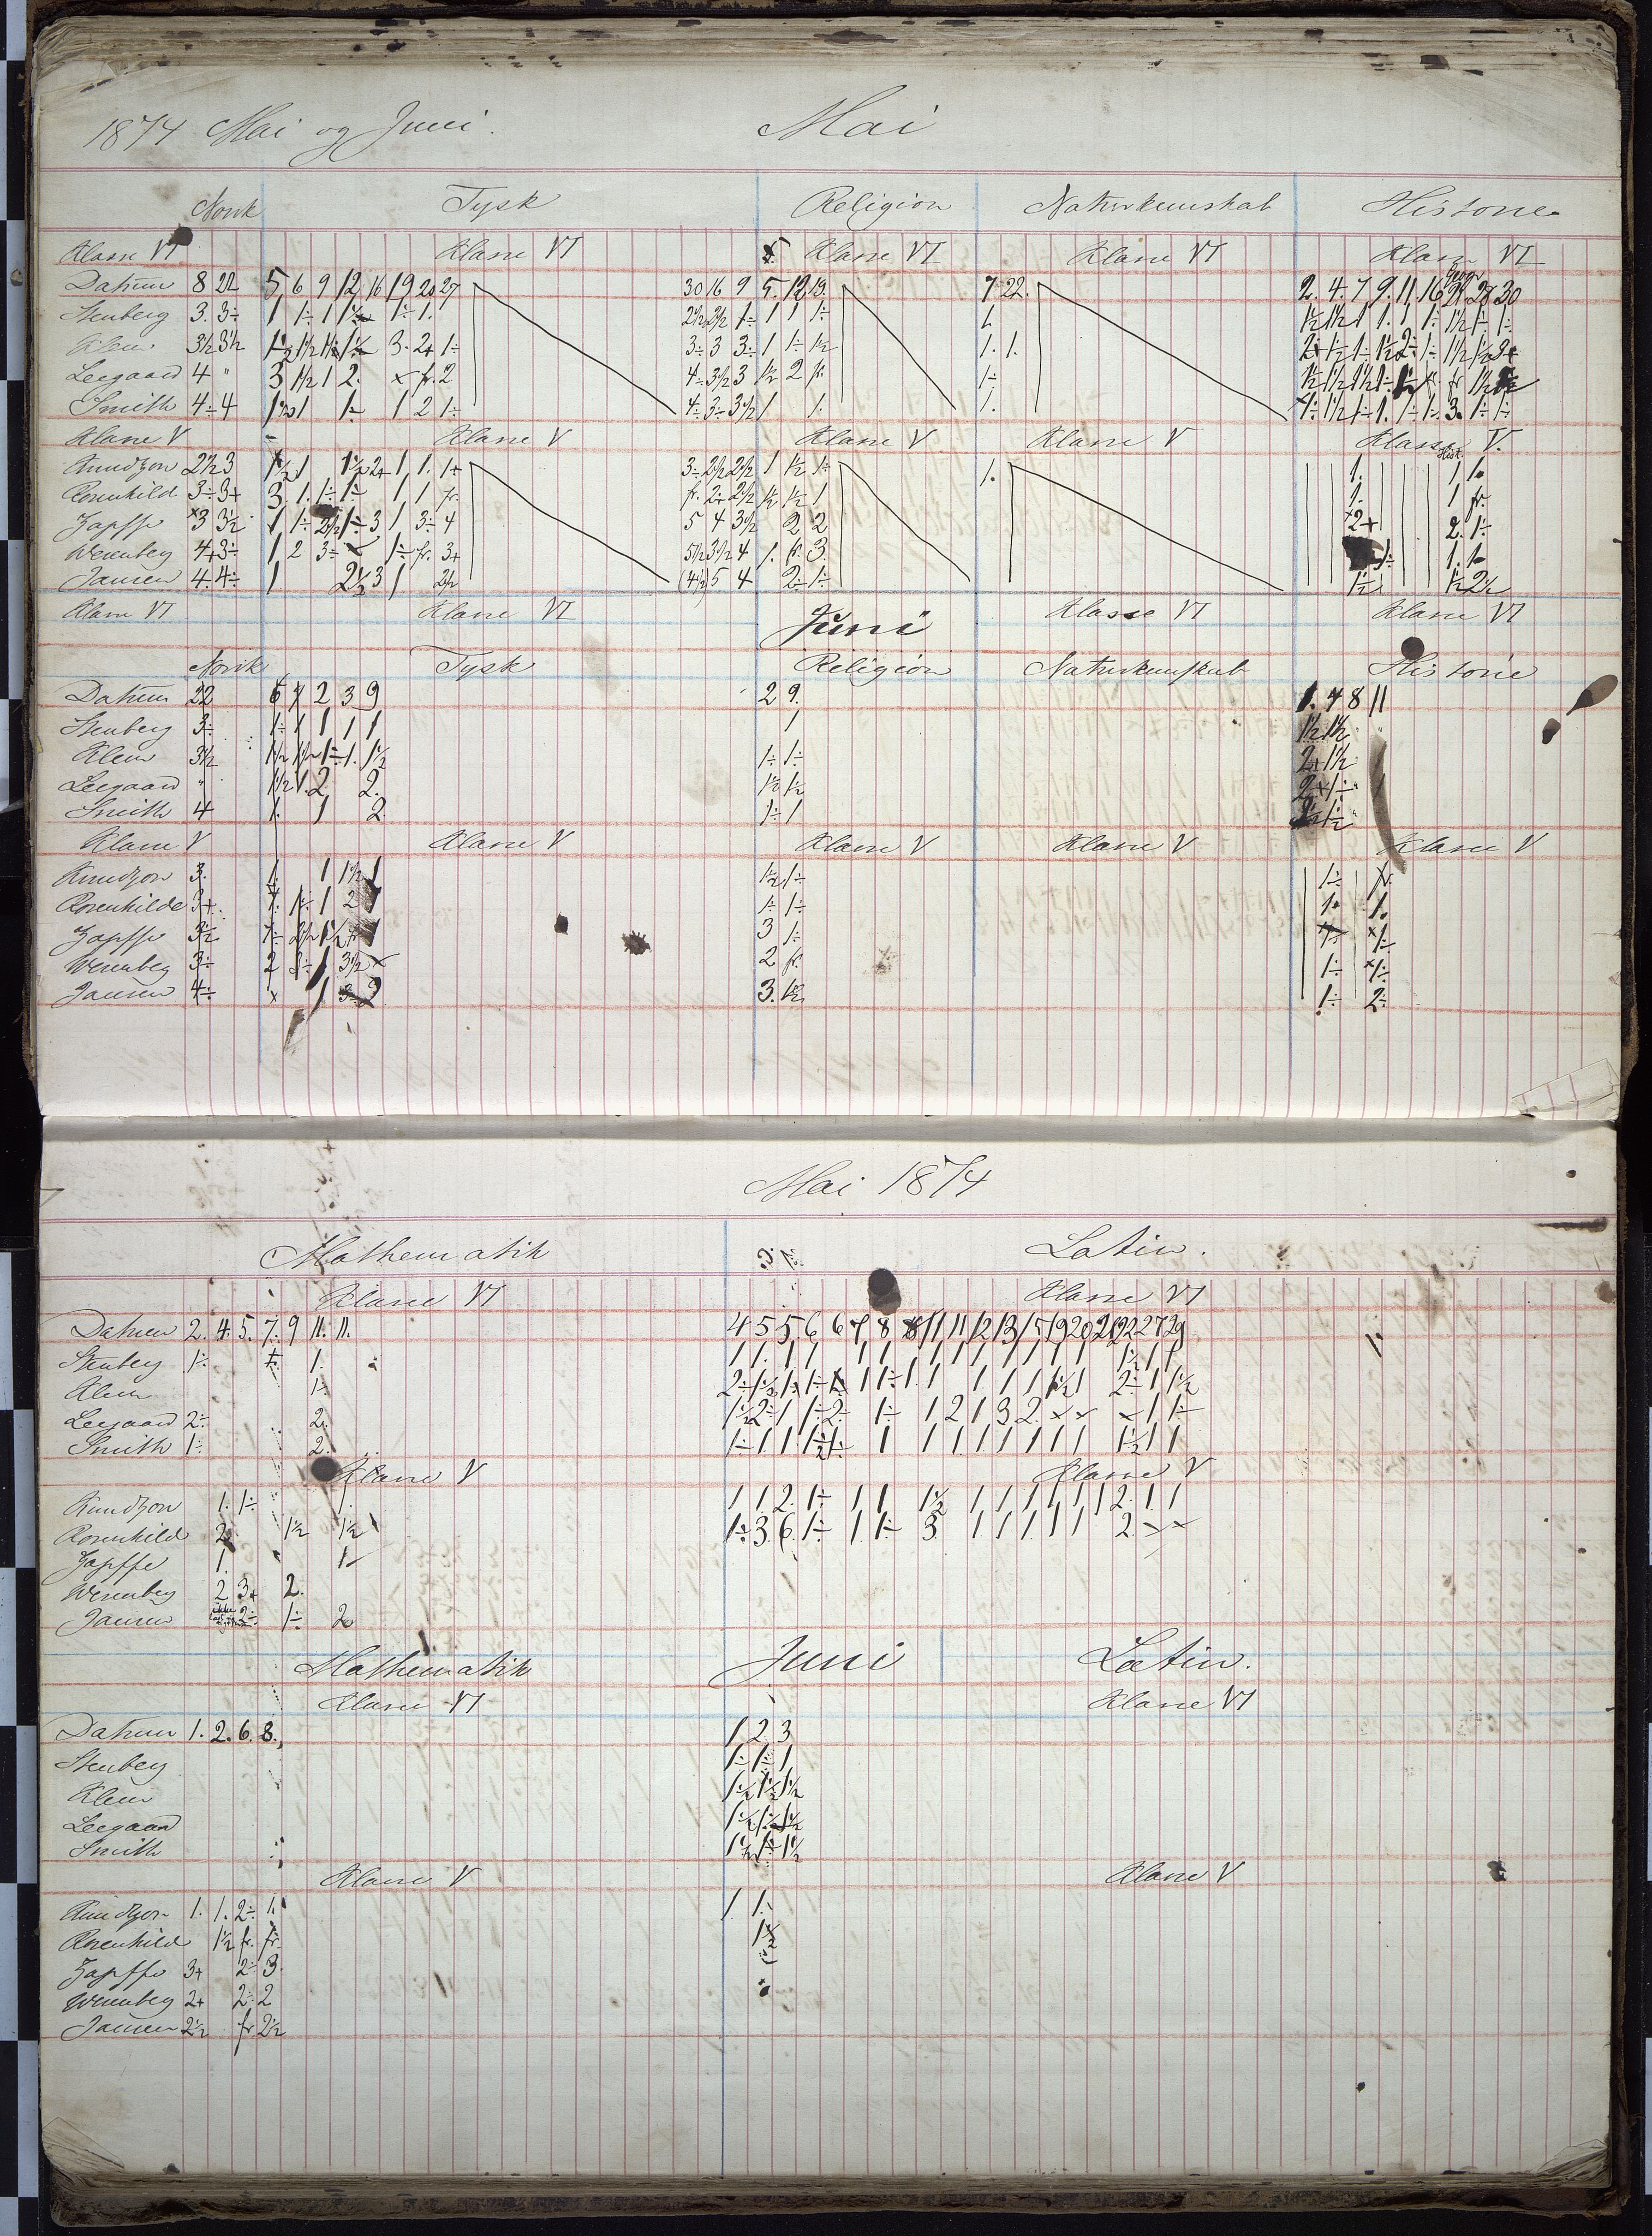 1874 Mai og Juni. Mai
Norsk Tysk Religion Naturkundskab Historie
Klasse VI Klasse VI Klasse VI Klasse VI Klasse VI
Datum 8 22 5 6 9 12 16 19 20 27 30 16 9 5. 12 19. 7 22. 2. 4. 7 9. 11. 16 21. 28 30
Stenberg 3. 3÷ 1 1÷ 1 1÷ 1. 2½ 2½ 1÷ 1 1 1÷ 1
Klem 3½ 3½ 3. 2+ 1÷ 3÷ 3 3÷ 1 1÷ 1½ 1. 1.
Leegaard 4 " 3 1½ 1 2. x fr. 2 4÷ 3½ 3 1½ 2 fr. 1÷
Smith 4÷ 4 1 1÷ 1 2 1÷ 4÷ 3÷ 3½ 1 1. 1.
Klasse V Klasse V Klasse V Klasse V Klasse V.
Knudtzon 2½ 3 1½ 1 1½ 2+ 1 1. 1+ 3÷ 2½ 2½ 1 1½ 1÷ 1. 1. 1 1.
Rosenkilde 3÷ 3+ 3. 1. 1÷ 1÷ 1 1 fr. fr. 2÷ 2½ 1½ 1½ 1 1. 1 fr.
Zapffe x3 3½ 1 1÷ 2½ 1÷ 3 1 3÷ 4 5 4 3½ 2 2 x2+ 2. 1÷
Wennberg 4+ 3÷ 1. 2 3÷ x 1÷ fr. 3+ 5½ 3½ 4 1. fr. 3. 1÷ 1. 1.
Jansen 4. 4÷ 1. 2½ 3 1 2½ (4½) 5 4 2÷ 1÷ 1½ 1½ 2½
Klasse VI Klasse VI Juni Klasse VI Klasse VI
Norsk Tysk Religion Naturkundskab Historie
Datum 22 6 7 2 3 9 2 9. 1. 4 8 11
Stenberg 3÷ 1÷ 1 1 1 1 1 1½ 1½ "
Klem 3½ 1½ 1½ 1÷ 1. 1½ 1÷ 1÷ 2+ 1½ "
Leegaard " 1½ 1. 2 2. 1½ 1½ 2+ 1÷ " 1
Smith 4 1. 1 2. 1÷ 1
Klasse V Klasse V Klasse V Klasse V Klasse V
Knudtzon 3. 1. 1 1½ 1 1½ 1÷ 1÷
Rosenkilde 3+ 1÷ 1 2 1 1÷ 1÷ 1. 1.
Zapffe 3½ 1÷ 2½ 1½ 3 1÷ x1÷
Wennberg 3÷ 2 3÷ 1 3½ x 2 fr. 1÷ x1÷
Jansen 4÷ x 1 2 3. 1½ 1÷ 2÷
Mai 1874
Mathematik Latin.
Klasse VI Klasse VI
Datum 2. 4. 5. 7. 9 11. 11. 4 5 5 6 6 7 8 8 11 11 12 13 15 19 20 21 22 27 29
Stenberg 1÷ 1. 1 1. 1 1 1 1 1 1 1 1 1 1 1 1½ 1 1
Klem 1÷ 2÷ 1½ 1÷ 1÷ 1 1÷ 1. 1 1. 1 1 1½ 1 2÷ 1 1½
Leegaard 2÷ 2. 1½ 2÷ 1 1÷ 2÷ 1÷ 1 2 1 3 2. x x x 1 1÷
Smith 1÷ 2. 1÷ 1 1 1½ 1÷ 1 1 1 1 1 1 1 1 1½ 1 1
Klasse V Klasse V
Knudtzon 1. 1÷ 1. 1 1 2. 1÷ 1 1 1½ 1 1 1 1 1 1 2. 1 1
Rosenkilde 2. 1½ 1½ 1÷ 3. 6. 1÷ 1 1÷ 3. 1 1 1 1 1 2. x x
Zapffe 1. 1÷
Wennberg 2 3+ 2.
Jansen 2÷ 1÷ 2
Mathematik Juni Latin.
Klasse VI Klasse VI
Datum 1. 2. 6. 8. 1 2 3
Stenberg 1÷ 1÷ 1
Klem 1½ 1½ 1½
Leegaard 1½ 1½ 1½
Smith 1½ 1÷ 1½
Klasse V Klasse V
Knudtzon 1. 1. 2÷ 1. 1 1.
Rosenkilde 1½ fr. fr. 1½
Zapffe 3+ 2÷ 3.
Wennberg 2+ 2÷ 2
Jansen 2½ fr 2½